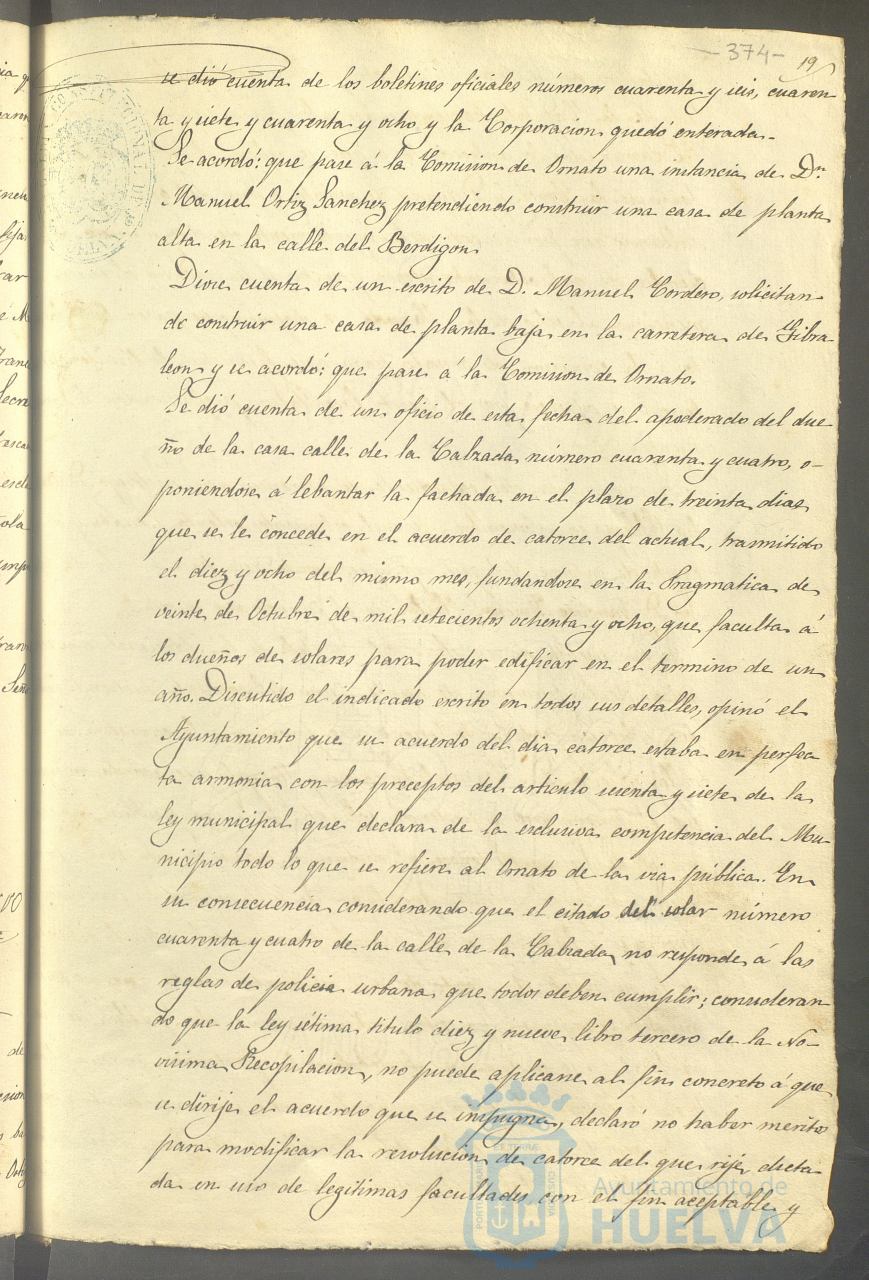 -374- 19
se dió cuenta de los boletines oficiales números cuarenta y seis, cuaren
ta y siete y cuarenta y ocho y la Corporacion quedó enterada.
Se acordó: que pase á la Comision de Ornato una instancia de Dn.
Manuel Ortiz Sanchez pretendiendo construir una casa de planta
alta en la calle del Berdigon.
Diose cuenta de un escrito de D. Manuel Cordero, solicitan-
do construir una casa de planta baja en la carretera de Gibra-
leon y se acordó: que pase á la Comision de Ornato.
Se dió cuenta de un oficio de esta fecha del apoderado del due-
ño de la casa calle de la Calzada número cuarenta y cuatro, o-
poniendose á lebantar la fachada en el plazo de treinta dias
que se le concede en el acuerdo de catorce del actual, trasmitido
el diez y ocho del mismo mes, fundandose en la Pragmatica de
veinte de Octubre de mil setecientos ochenta y ocho, que faculta á
los dueños de solares para poder edificar en el termino de un
año. Discutido el indicado escrito en todos sus detalles, opinó el
Ayuntamiento que su acuerdo del dia catorce estaba en perfec
ta armonia con los preceptos del articulo sesenta y siete de la
ley municipal que declara de la esclusiva competencia del Mu-
nicipio todo lo que se refiere al Ornato de la via pública. En
su consecuencia considerando que el citado del solar número
cuarenta y cuatro de la calle de la Calzada, no responde á las
reglas de policia urbana que todos deben cumplir; consideran
do que la ley sétima titulo diez y nueve libro tercero de la No-
visima Recopilacion, no puede aplicarse al fin concreto á que
se dirije el acuerdo que se impugna, declaró no haber meritos
para modificar la resolucion de catorce del que rije, dicta-
da en uso de legitimas facultades con el fin aceptable y
Ayuntamiento de
HUELVA